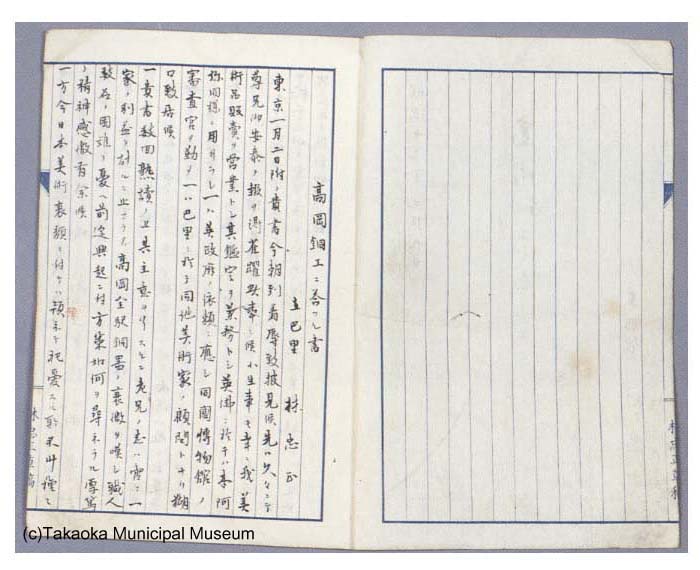 高岡銅工ニ答フル書
在巴里 林忠正
東京一月二日附ノ貴書今朝到着辱致披見候先ハ久々ニテ
尊兄御安泰ノ報ヲ得雀躍欣喜ニ候小生幸モ幸ニ我美
術品販賣ヲ営業トシ其鑑定ヲ業務トシ英佛ニ於テハ本阿
弥同様ニ用ヰラレ一ハ英政府ノ依頼ニ應シ同國博物館ノ
審査官ヲ勤メ一ハ巴里ニ於テ同地美術家ノ顧問トナリ糊
口致居候
一貴書数回熟讀ノ上其主意ヲ 老兄ノ志ハ實ニ一
家ノ利益ヲ計ルニ止マラス高岡全駅銅器ノ衰微ヲ嘆シ職人
数名ノ困難ヲ憂ヘ前途興起ニ付方策如何ヲ尋ネラル厚篤
ノ精神感激有余候
一方今日本美術衰頽ニ付テハ 種々
(c)Takaoka Municipal Museum